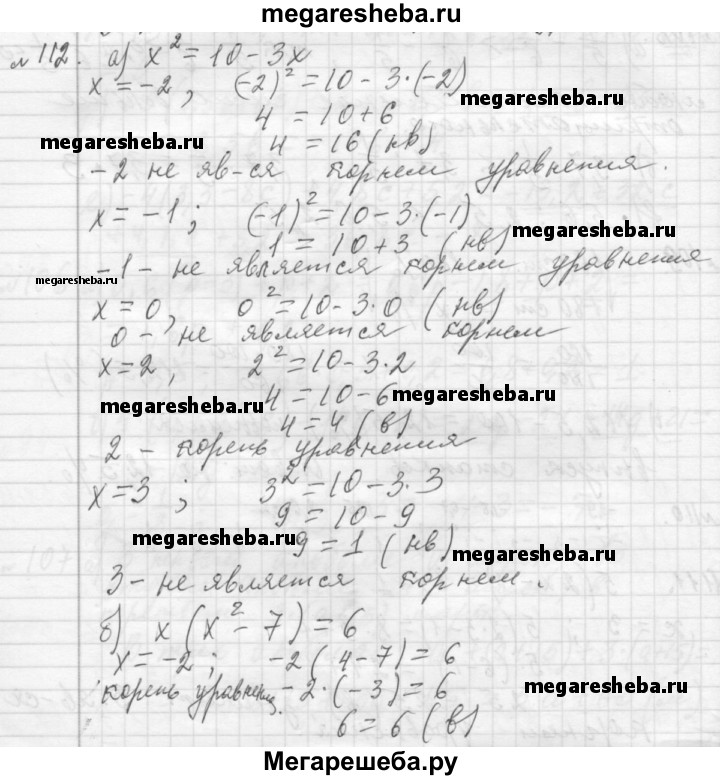 megaresheba.ru
№112. а) x² = 10 - 3x
x = -2, (-2)² = 10 - 3·(-2)
megaresheba.ru
4 = 10 + 6
megaresheba.ru
4 = 16 (нв)
-2 не яв-ся корнем уравнения.
x = -1; (-1)² = 10 - 3·(-1)
megaresheba.ru
1 = 10 + 3 (нв)
-1 - не является корнем уравнения
megaresheba.ru
x = 0, 0² = 10 - 3·0 (нв)
0 - не является корнем
x = 2, 2² = 10 - 3·2
megaresheba.ru
4 = 10 - 6
megaresheba.ru
4 = 4 (в)
2 - корень уравнения
x = 3; 3² = 10 - 3·3
9 = 10 - 9
megaresheba.ru
9 = 1 (нв)
megaresheba.ru
3 - не является корнем.
б) x(x² - 7) = 6
x = -2; -2(4 - 7) = 6
корень уравнения. -2·(-3) = 6
megaresheba.ru
6 = 6 (в)
Мегарешеба.ру